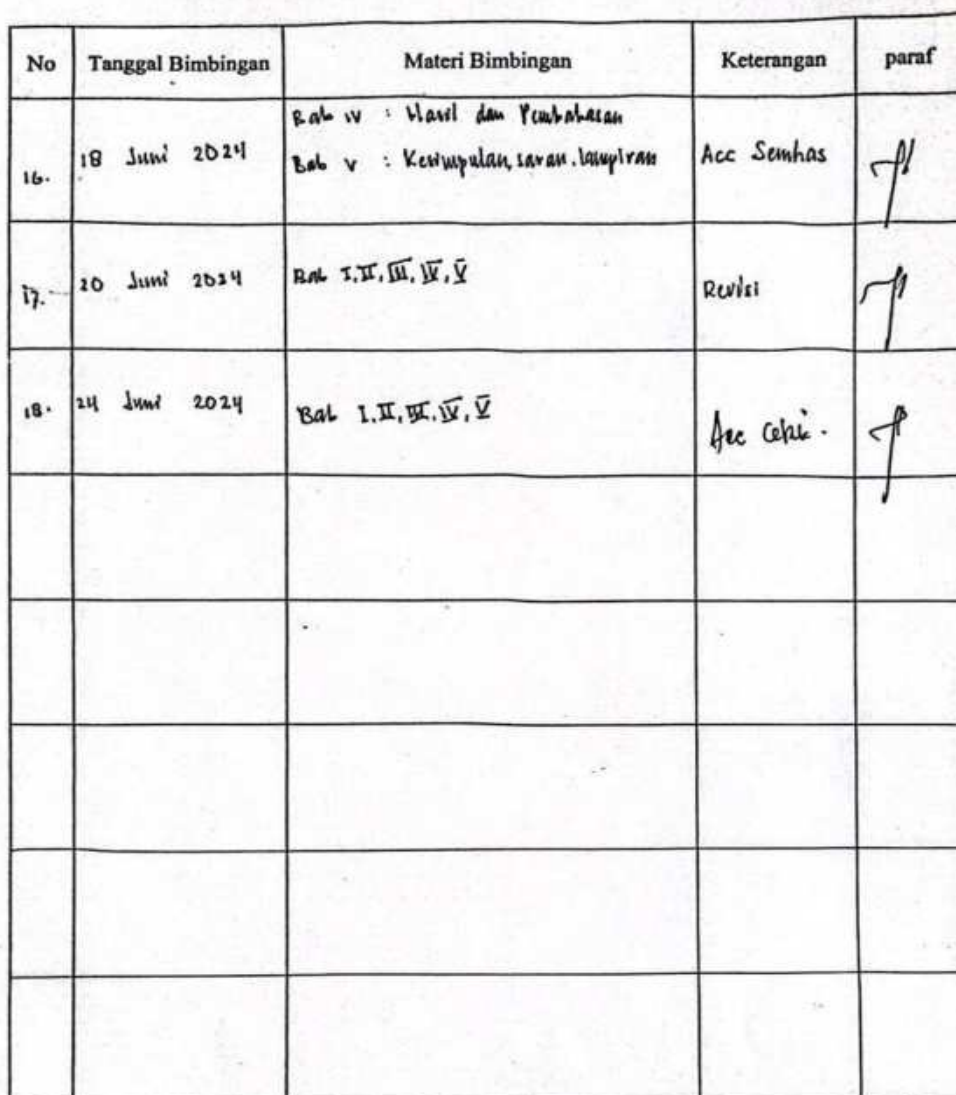 No Tanggal Bimbingan Materi Bimbingan Keterangan paraf
16. 18 Juni 2024 Bab IV : Hasil dan Pembahasan
Bab V : Kesimpulan, saran, lampiran Acc Semhas
17. 20 Juni 2024 Bab I, II, III, IV, V Revisi
18. 24 Juni 2024 Bab I, II, III, IV, V Acc